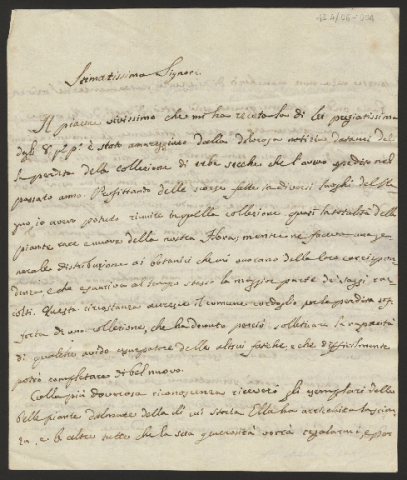 Stimatissimo Signore
Il piacere vivissimo che mi ha recato la di lei pregiatissima
degli 8 p.º p.º è stato amareggiato dalla dolorosa notizia datami del
la perdita della collezione di erbe secche che l'avevo spedito nel
passato anno. Profittando delle corse fatte in diversi luoghi del Re
gno io avevo potuto riunire in quella collezione quasi la totalità delle
piante rare e nuove della nostra Flora, mentre ne facevo una ge
nerale distribuzione ai botanici che mi onorano della loro corrispon
denza, e da esauriva al tempo stesso la maggior parte de' saggi rac
colti. Questa circostanza accresce il comune cordoglio per la perdita
di una collezione, che ha dovuto perciò sollecitare la rapacità
di qualche avido usurpatore delle altrui fatiche, e che difficilmente
potrò completare di bel nuovo.
Colla più doverosa riconoscenza riceverò gli esemplari delle
belle piante dalmate della di cui storia Ella ha arricchita la scien
za, e le altre tutte che la sua generosità vorrà regalarmi, e per